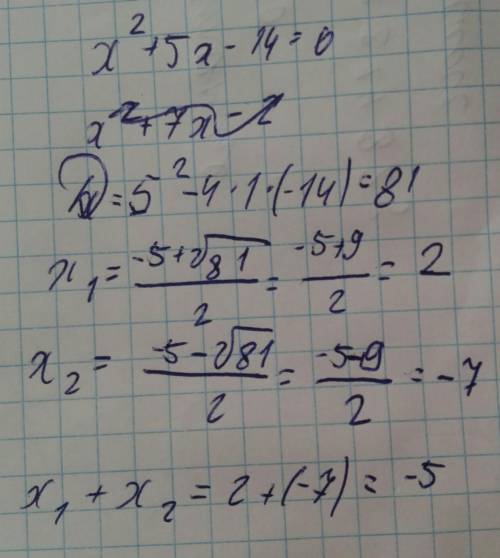 x² + 5x - 14 = 0
x² + 7x - 2
D = 5² - 4 · 1 · (-14) = 81
x₁ = (-5 + √81)/2 = (-5 + 9)/2 = 2
x₂ = (-5 - √81)/2 = (-5 - 9)/2 = -7
x₁ + x₂ = 2 + (-7) = -5